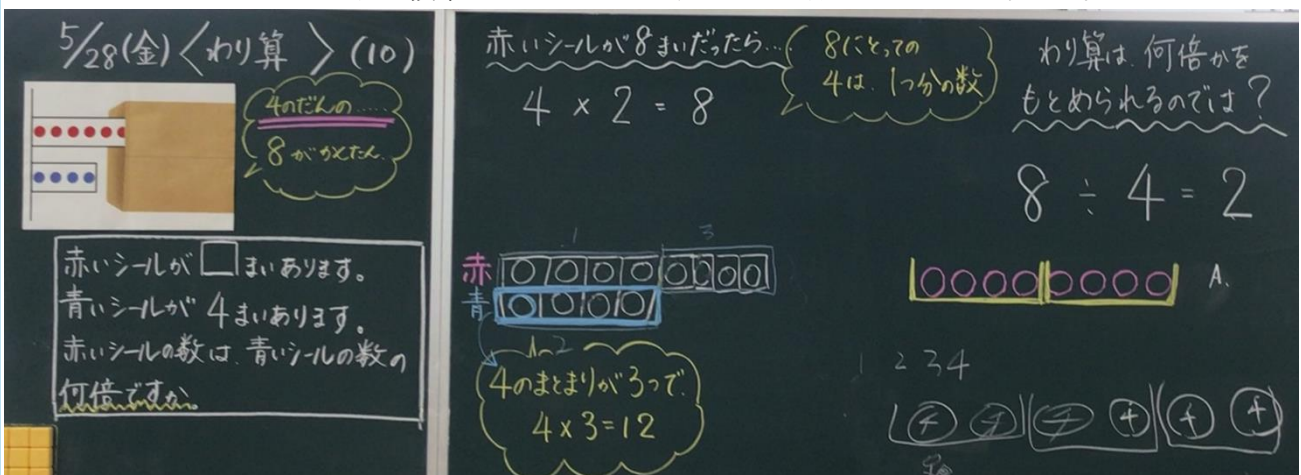 5/28(金)〈わり算〉(10)
4のだんの……
8がかんたん
赤いシールが□まいあります。
青いシールが4まいあります。
赤いシールの数は、青いシールの数の
何倍ですか。
赤いシールが8まいだったら…
4×2=8
8にとっての
4は、1つ分の数
1
3
赤
青
4のまとまりが3つで
4×3=12
わり算は、何倍かを
もとめられるのでは?
8÷4=2
A.
1 2 3 4
4 4 4 4 4 4